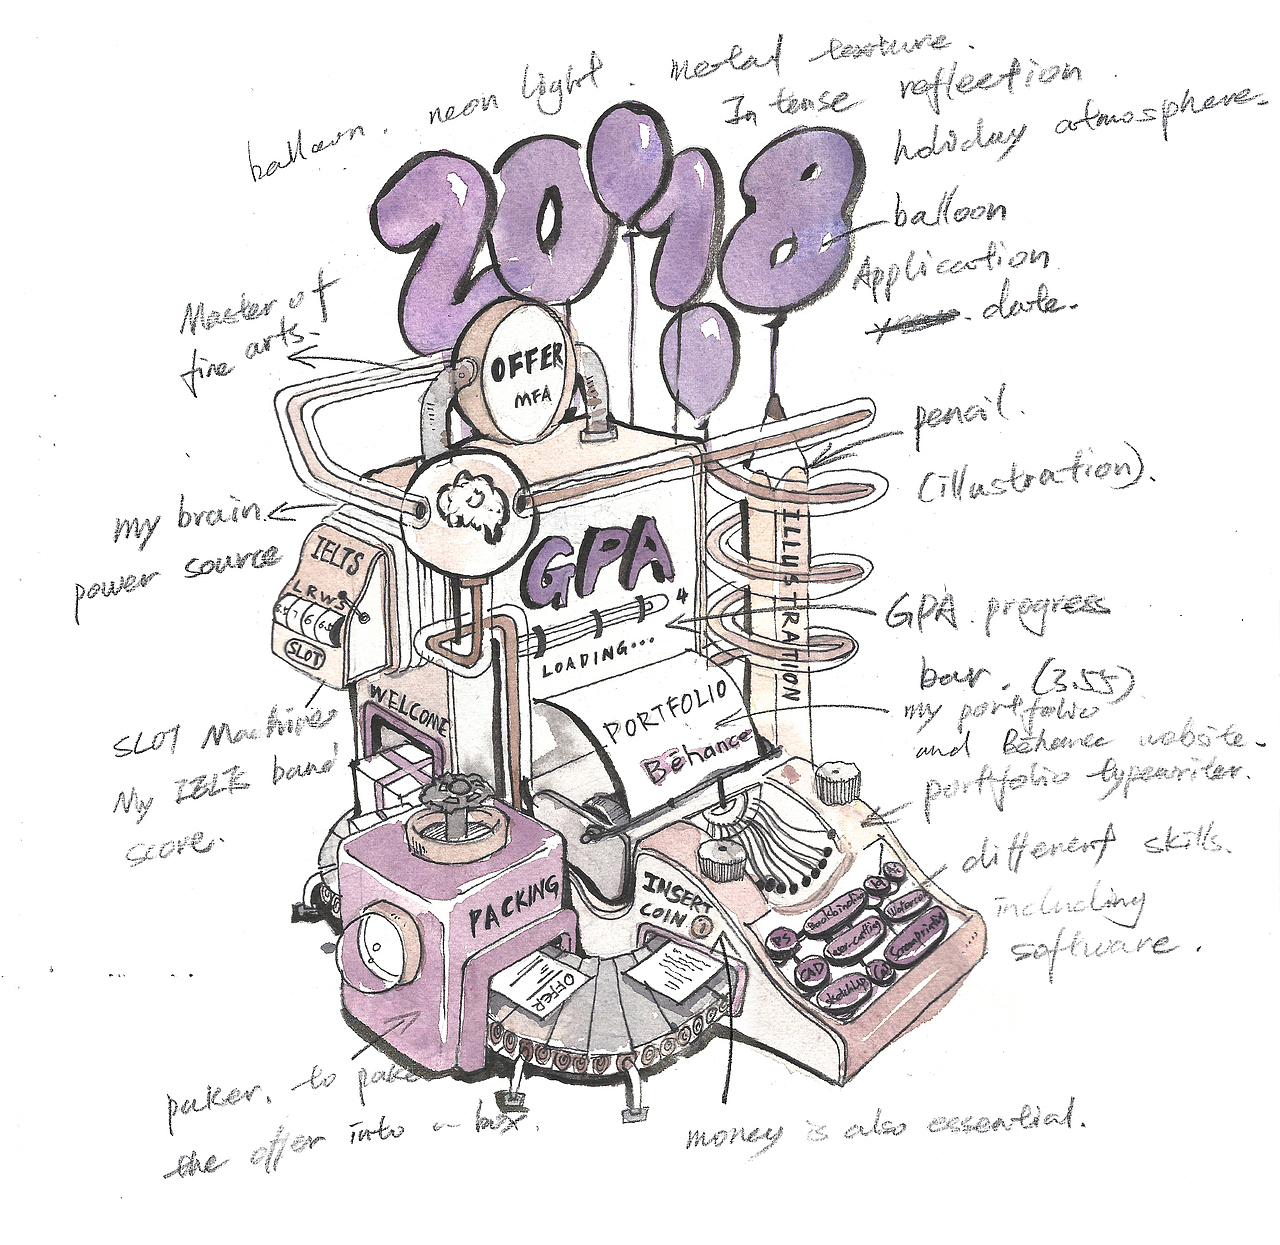 balloon. neon light. Metal texture.
Intense reflection
holiday atmosphere.
2018
balloon
Application
date.
Master of
fine arts.
OFFER
MFA
pencil.
(illustration).
my brain.
power source
IELTS
L R W S
SLOT
GPA
4
LOADING...
ILLUSTRATION
GPA progress
bar. (3.55)
my portfolio
and Behance website.
portfolio typewriter.
PORTFOLIO
Behance
WELCOME
SLOT Machines
My IELTS band
score.
different skills.
including
software.
PACKING
INSERT
COIN
OFFER
PS
Bookbinding
Laser-cutting
ScreenPrinting
CAD
SketchUp
paker. to pake
the offer into a box.
money is also essential.